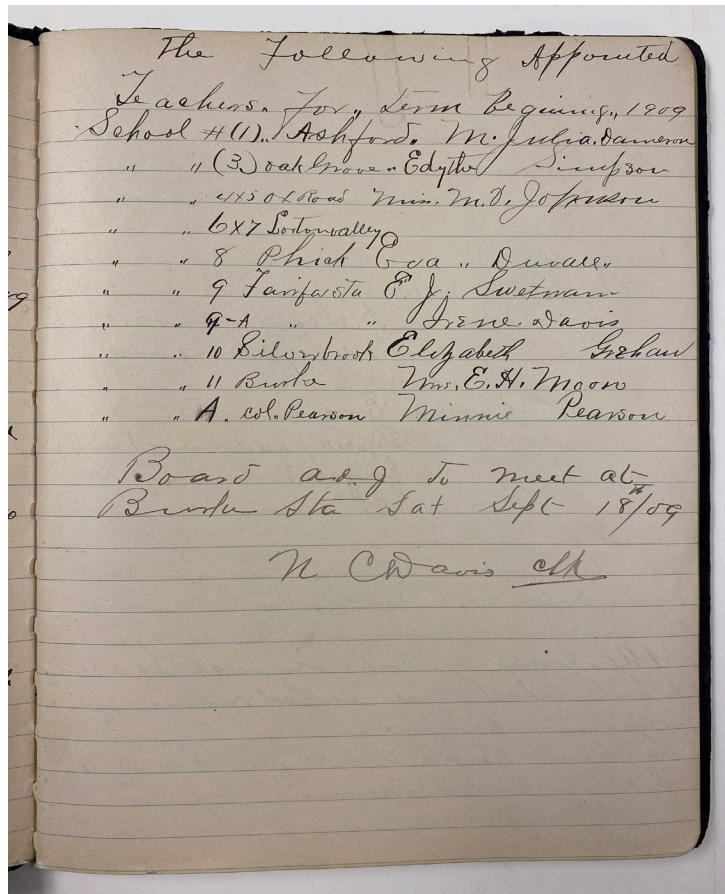 The Following Appointed
Teachers. For,, term Begining,, 1909
School #(1),, Ashford. M. Julia. Dameron
,, ,, (3) oak Grove ,, Edythe Simpson
,, ,, 4x5 Ox Road Miss. M. D. Johnson
,, ,, 6x7 Lortonvalley
,, ,, 8 Phick Eva ,, Duvall,,
,, ,, 9 Fairfax Sta E J. Swetnam
,, ,, 9-A ,, ,, Irene Davis
,, ,, 10 Silverbrook Elizabeth Grehan
,, ,, 11 Burke Mrs. E. H. Moon
,, ,, A. col. Pearson Minnie Pearson
Board adj to meet at
Burke Sta Sat Sept 18th/09
N C Davis clk